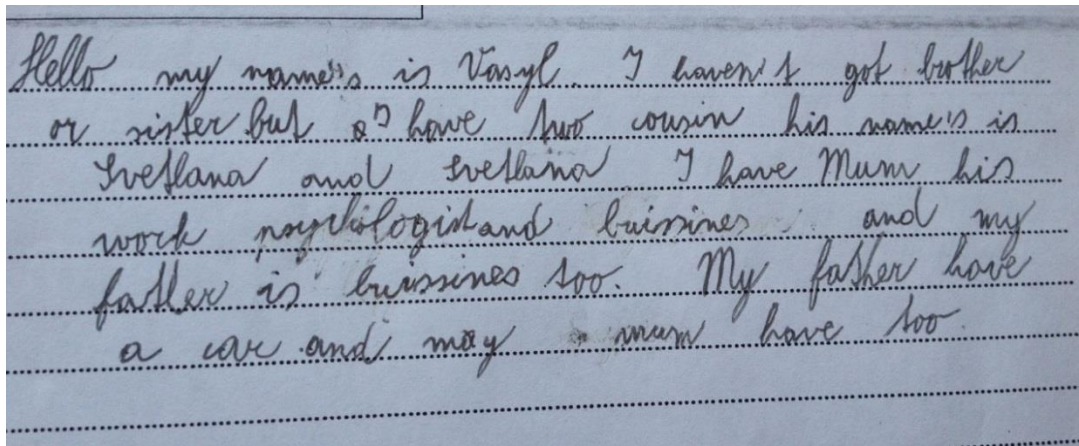 Hello my name's is Vasyl. I haven't got brother
or sister but I have two cousin his name's is
Svetlana and Svetlana I have Mum his
work psychilogist and buissines and my
father is buissines too. My father have
a car and may mum have too.